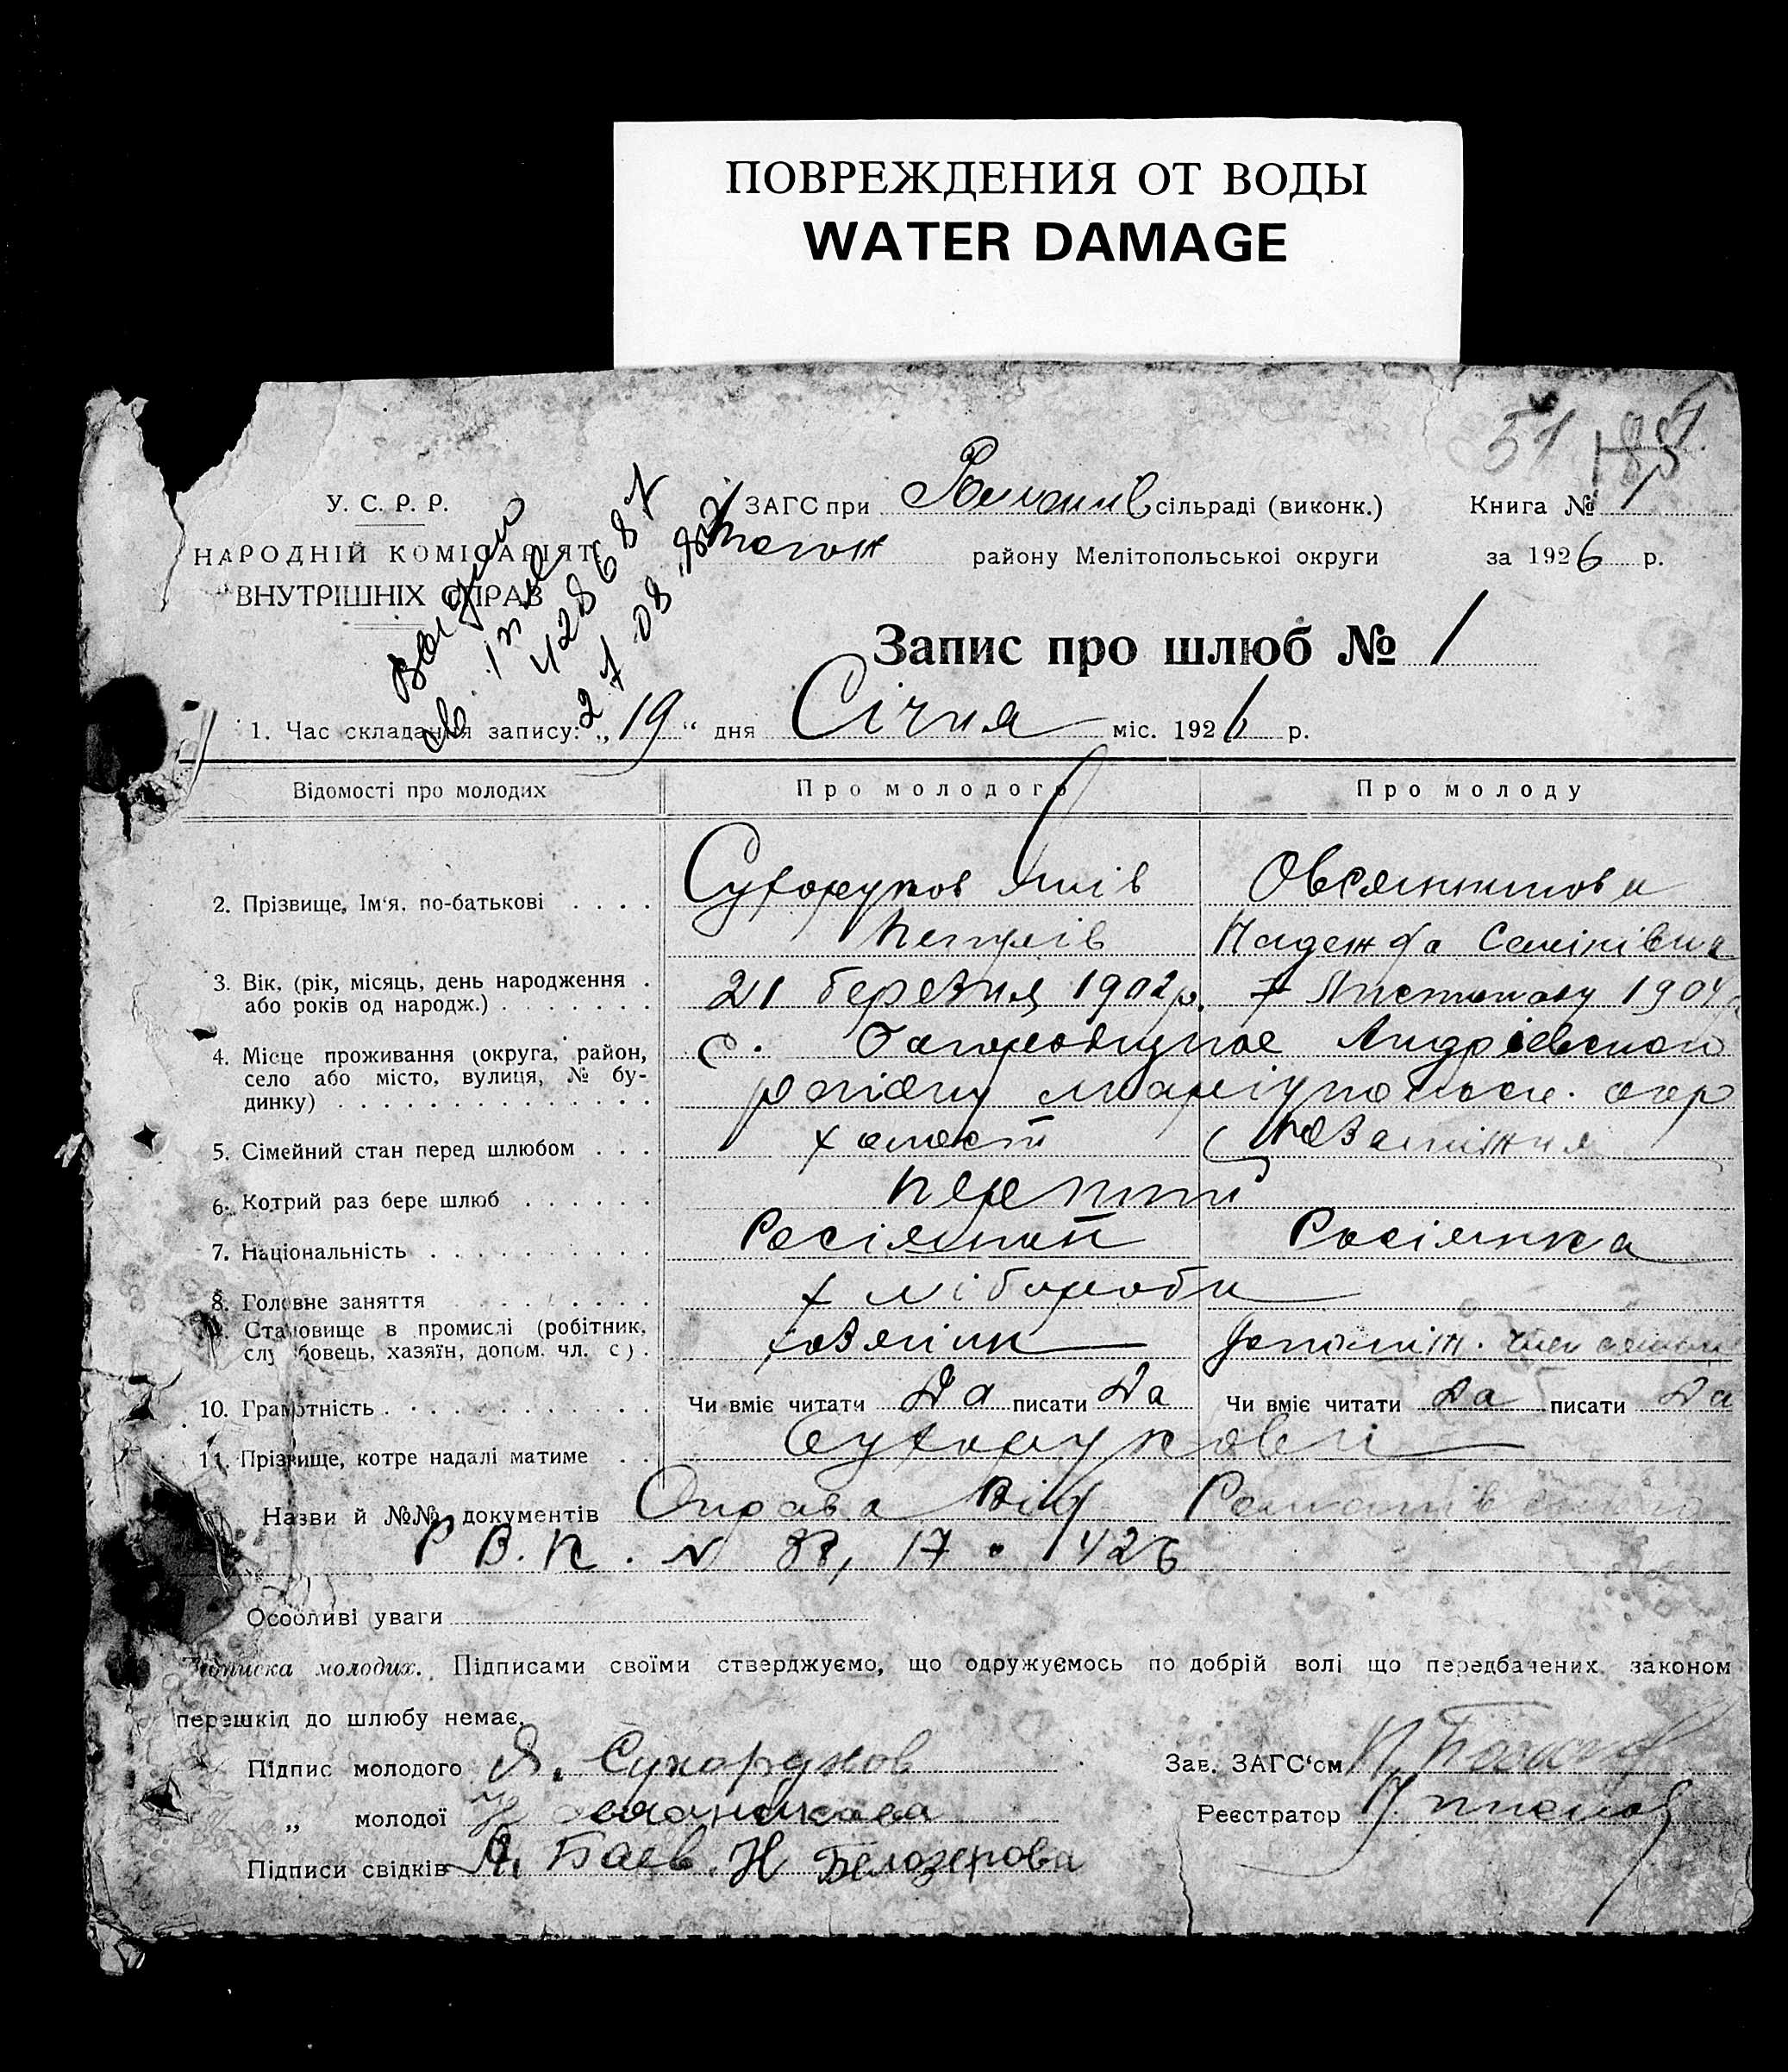 ПОВРЕЖДЕНИЯ ОТ ВОДЫ
WATER DAMAGE
51
У. С. Р. Р.
НАРОДНІЙ КОМІСАРІЯТ
ВНУТРІШНІХ СПРАВ
ЗАГС при сільраді (виконк.)
району Мелітопольської округи
Книга № 1
за 1926 р.
Запис про шлюб № 1
1. Час складання запису: „19“ дня Січня міс. 1926 р.
Відомості про молодих Про молодого Про молоду
2. Прізвище, Ім'я, по-батькові Сухоруков Яків Овсянникова
Надежда Семінівна
3. Вік, (рік, місяць, день народження або років од народж.) 21 березня 1902 р. 7 Листопаду 1904
4. Місце проживання (округа, район, село або місто, вулиця, № будинку) с. Андрієвского
району маріупольск. окр
5. Сімейний стан перед шлюбом холост незаміжня
6. Котрий раз бере шлюб перший
7. Національність Росіянин Росіянка
8. Головне заняття хлібороби
9. Становище в промислі (робітник, службовець, хазяїн, допом. чл. с). хозяїн допоміж. член
10. Грамотність Чи вміє читати Да писати Да Чи вміє читати Да писати Да
11. Прізвище, котре надалі матиме Сухорукови
Назви й №№ документів Справа від Романівского
Р В. К. N 88, 17
Особливі уваги
Підписка молодих. Підписами своїми стверджуємо, що одружуємось по добрій волі що передбачених законом
перешкід до шлюбу немає.
Підпис молодого Я. Сухоруков
Зав. ЗАГС'ом
„ молодої Овсяникова
Реєстратор
Підписи свідків Я. Баев. Н Белозерова